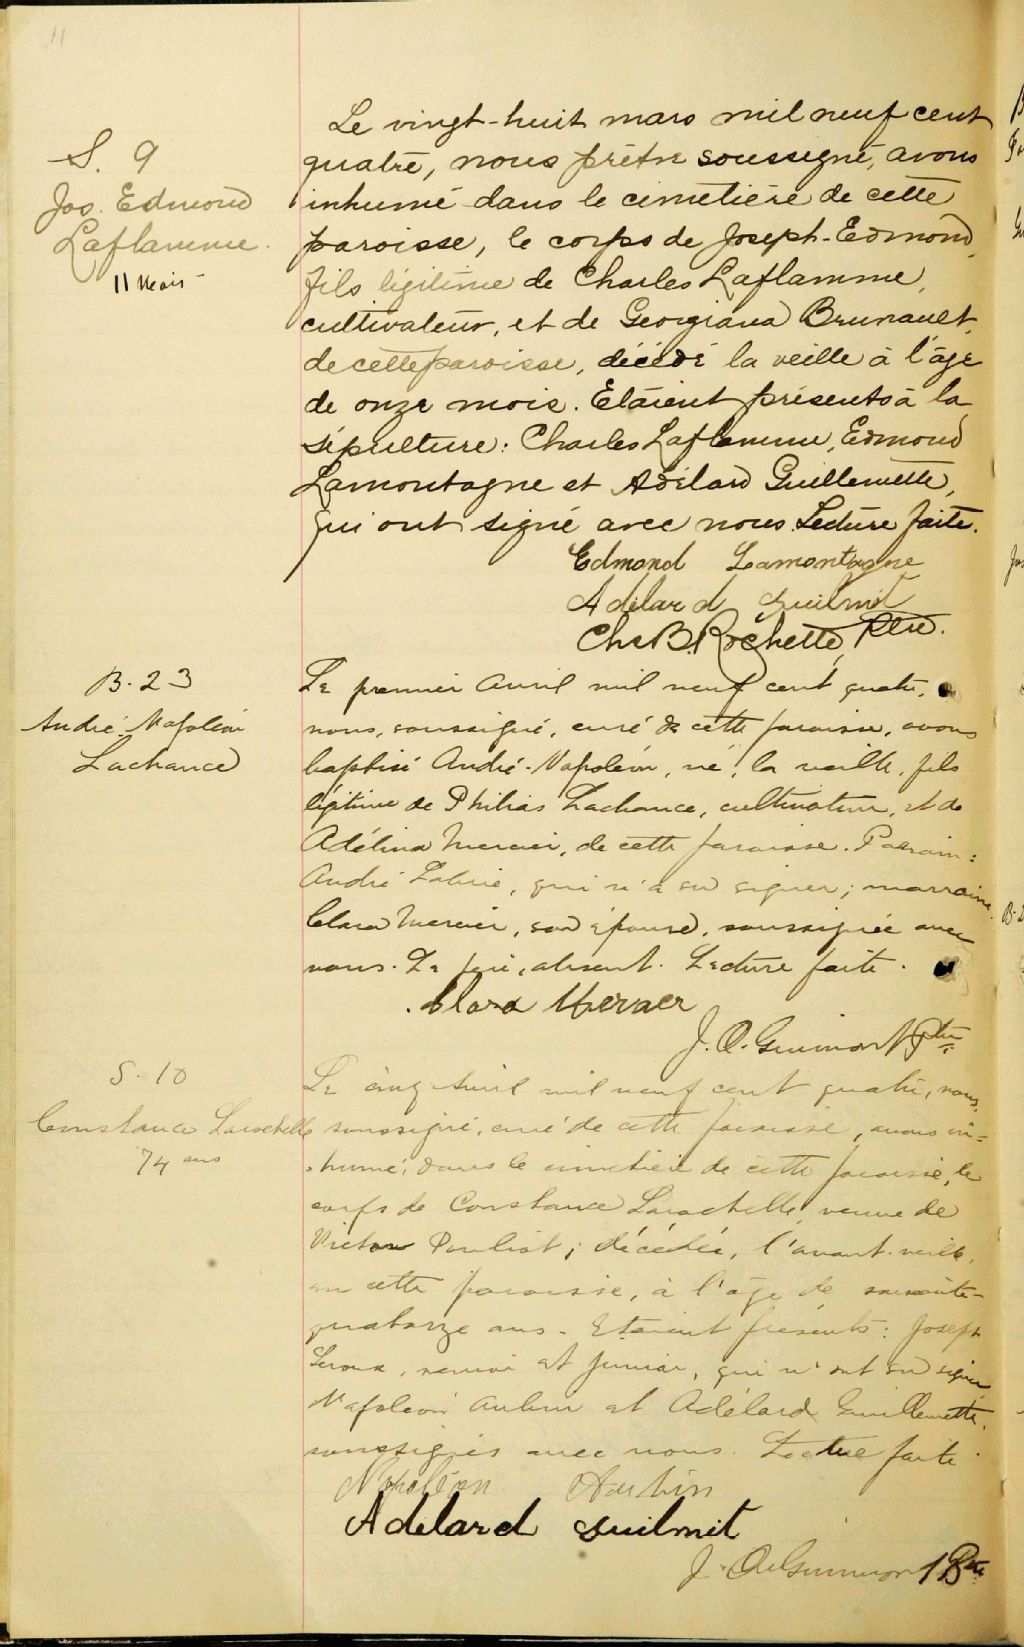 11
S. 9
Jos. Edmond
Laflamme.
11 mois
Le vingt-huit mars mil neuf cent
quatre, nous prêtre soussigné, avons
inhumé dans le cimetière de cette
paroisse, le corps de Joseph-Edmond,
fils légitime de Charles Laflamme,
cultivateur, et de Georgiana Brunault,
de cette paroisse, décédé la veille à l'âge
de onze mois. Etaient présents à la
sépulture: Charles Laflamme, Edmond
Lamontagne et Adélard Guillemette,
qui ont signé avec nous. Lecture faite.
Edmond Lamontagne
Adélard Guilmit
Chs B. Rochette, Ptre.
B. 23
André-Napoléon
Lachance
Le premier Avril mil neuf cent quatre,
nous, soussigné, curé de cette paroisse, avons
baptisé André-Napoléon, né, la veille, fils
légitime de Philias Lachance, cultivateur, et de
Adélina Mercier, de cette paroisse. Parrain:
André Labrie, qui n'a su signer; marraine,
Clara Mercier, son épouse, soussignée avec
nous. Le père, absent. Lecture faite.
Clara Mercier
J. O. Guimont Ptre
S. 10
Constance Larochelle
74 ans
Le cinq Avril mil neuf cent quatre, nous,
soussigné, curé de cette paroisse, avons in-
humé, dans le cimetière de cette paroisse, le
corps de Constance Larochelle, veuve de
Victor Pouliot; décédée, l'avant-veille,
en cette paroisse, à l'âge de soixante-
quatorze ans. Etaient présents: Joseph
Leroux, senior et junior, qui n'ont su signer,
Napoléon Aubin et Adélard Guillemette,
soussignés avec nous. Lecture faite.
Napoléon Aubin
Adelard Guilmit
J. O. Guimont Ptre